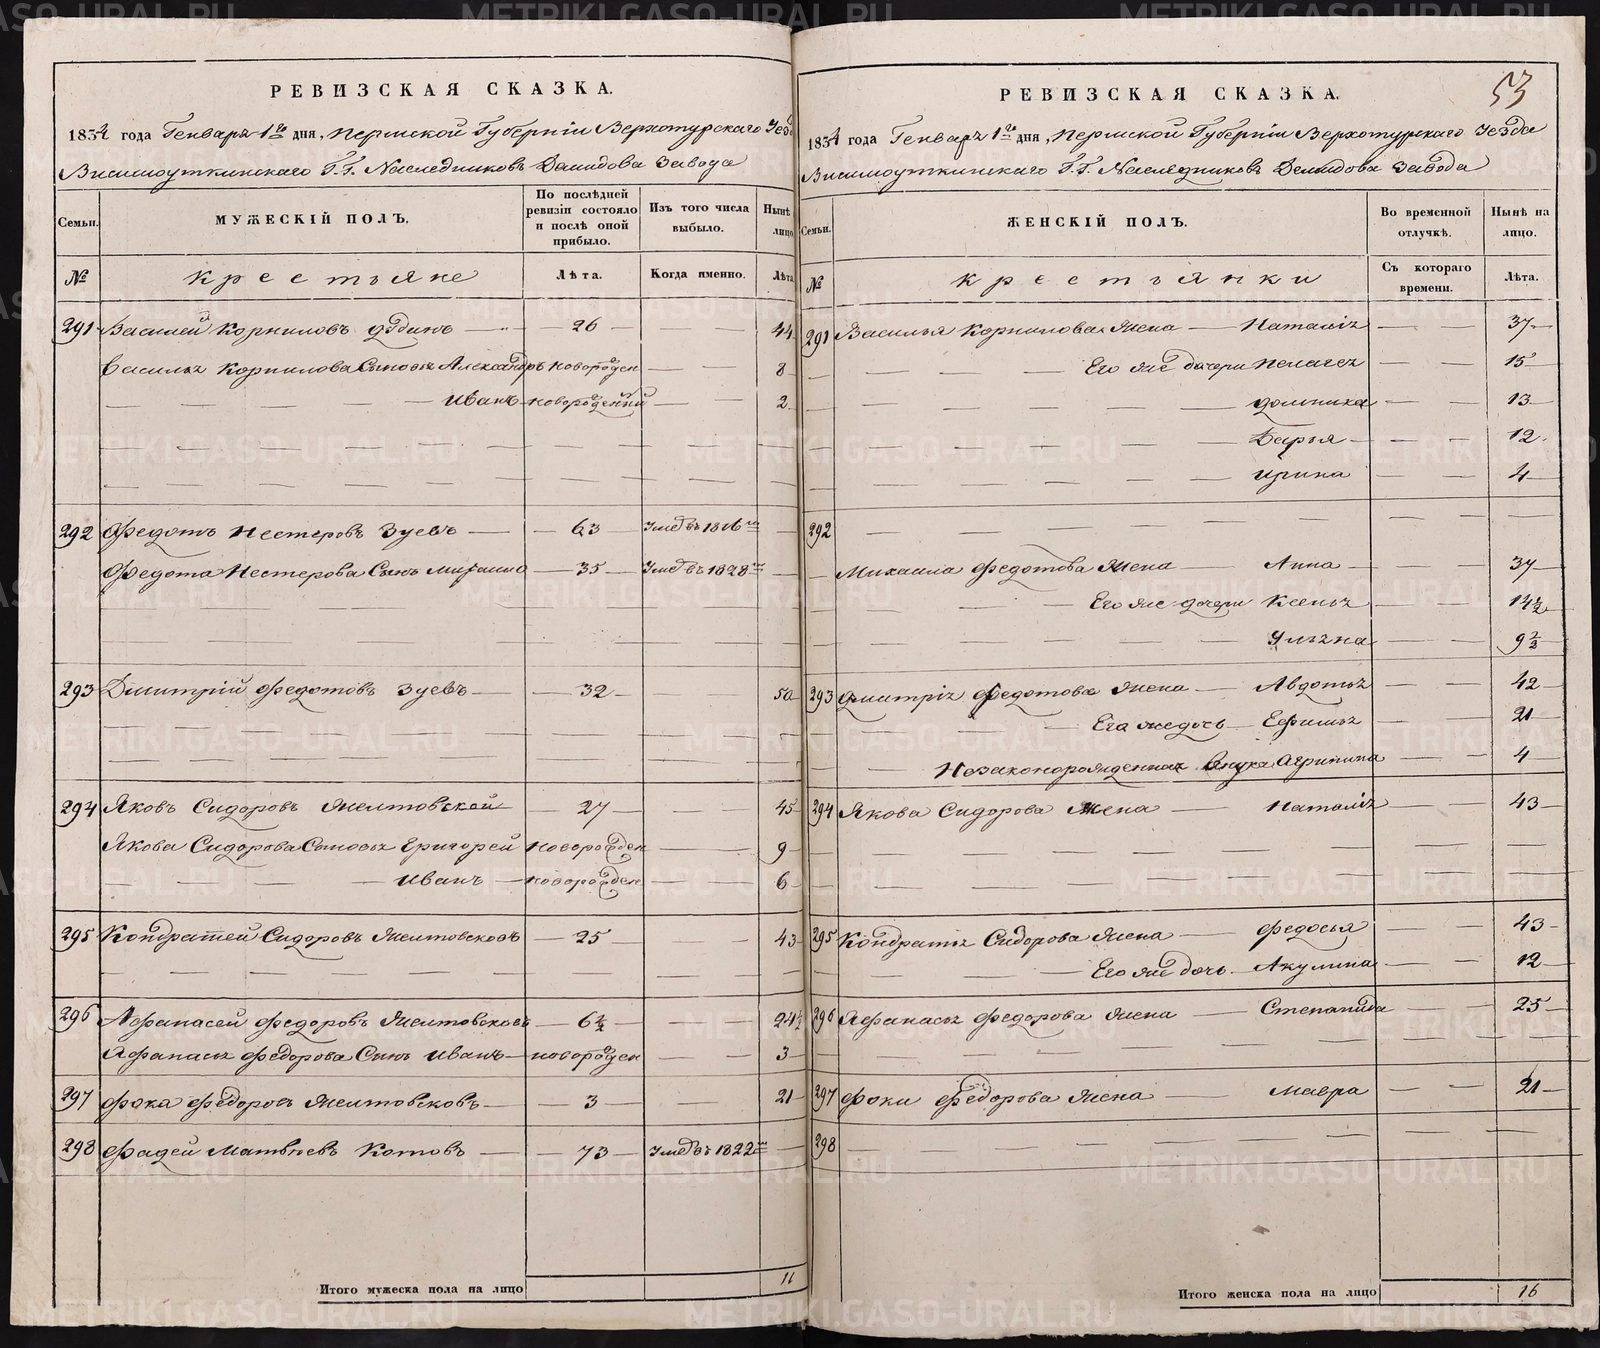 РЕВИЗСКАЯ СКАЗКА.
1834 года Генваря 1го дня, Пермской Губерніи Верхотурскаго Уезда
Висимоуткинскаго Г.Г. Наследниковъ Демидова Завода
Семьи.
МУЖЕСКІЙ ПОЛЪ.
По послѣдней ревизіи состояло и послѣ оной прибыло.
Изъ того числа выбыло.
Нынѣ на лицо
№
Крестьяне
Лѣта.
Когда именно.
Лѣта
291 Василей Корниловъ 26 44
Василья Корнилова Сыновья Александръ новорожден 8
Иванъ новорожденный 2
292 Федотъ Нестеровъ Зуевъ 63 Умеръ въ 1816м
Федота Нестерова Сынъ Михаило 35 Умеръ въ 1828м
293 Дмитрій Федотовъ Зуевъ 32 50
294 Яковъ Сидоровъ Желтовской 27 45
Якова Сидорова Сыновья Григорей новорожден 9
Иванъ новорожден 6
295 Кондратей Сидоровъ Желтовсковъ 25 43
296 Афанасей Федоровъ Желтовсковъ 6½ 24½
Афанасья Федорова Сынъ Иванъ новорожден 3
297 Фока Федоровъ Желтовсковъ 3 21
298 Фадей Матвѣевъ Котовъ 73 Умеръ въ 1822м
Итого мужеска пола на лицо 11
53
РЕВИЗСКАЯ СКАЗКА.
1834 года Генваря 1го дня, Пермской Губерніи Верхотурскаго Уезда
Висимоуткинскаго Г.Г. Наследниковъ Демидова Завода
Семьи.
ЖЕНСКІЙ ПОЛЪ.
Во временной отлучкѣ.
Нынѣ на лицо.
№
Крестьянки
Съ котораго времени.
Лѣта.
291 Василья Корнилова Жена Наталія 37
Его же дочери Пелагея 15
Домника 13
Дарья 12
Ирина 4
292
Михаила Федотова Жена Анна 37
Его же дочери Ксенья 14½
Ульяна 9½
293 Дмитрія Федотова Жена Авдотья 42
Его же дочь Ефимья 21
Незаконорожденная Внука Агрипина 4
294 Якова Сидорова Жена Наталія 43
295 Кондратья Сидорова Жена Федосья 43
Его же дочь Акулина 12
296 Афанасья Федорова Жена Степанида 25
297 Фоки Федорова Жена Мавра 21
298
Итого женска пола на лицо 16
METRIKI.GASO-URAL.RU